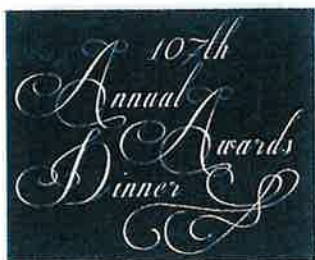 107th
Annual
Awards
Dinner